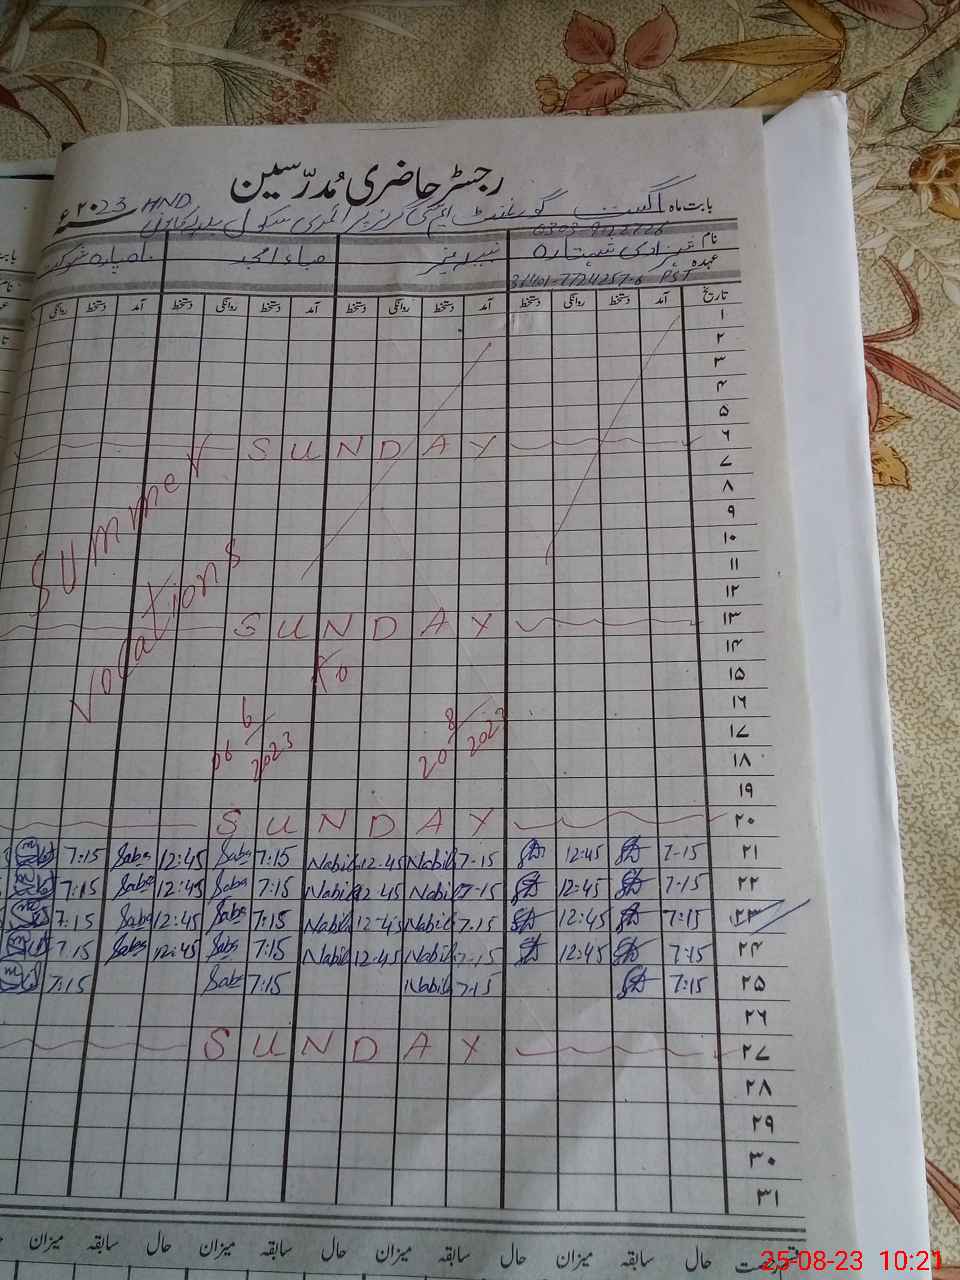 رجسٹر حاضری مُدرّسین
بابت ماہ اگست گورنمنٹ گرلز پرائمری سکول HND ۲۰23ء
نام شہزادی ستارہ نبیلہ منیر صباء امجد
عہدہ PST
تاریخ آمد دستخط روانگی دستخط آمد دستخط روانگی دستخط آمد دستخط روانگی دستخط آمد دستخط روانگی
۱
۲
۳
۴
۵
۶ SUNDAY
۷
۸
۹
۱۰
۱۱
۱۲
Summer
Vocations
۱۳ SUNDAY
۱۴
۱۵ To
۱۶
۱۷ 06/6/2023 20/8/2023
۱۸
۱۹
۲۰ SUNDAY
7:15 Saba 12:45 Saba 7:15 Nabila 12:45 Nabila 7-15 12:45 7-15 ۲۱
7:15 Saba 12:45 Saba 7:15 Nabila 12-45 Nabila 7-15 12:45 7-15 ۲۲
7:15 Saba 12:45 Saba 7:15 Nabila 12-45 Nabila 7.15 12:45 7:15 ۲۳
7.15 Saba 12:45 Saba 7:15 Nabila 12:45 Nabila 7-15 12:45 7:15 ۲۴
7:15 Saba 7:15 Nabila 7-15 7:15 ۲۵
۲۶
۲۷ SUNDAY
۲۸
۲۹
۳۰
۳۱
حال سابقہ میزان حال سابقہ میزان حال سابقہ میزان حال سابقہ میزان
25-08-23 10:21